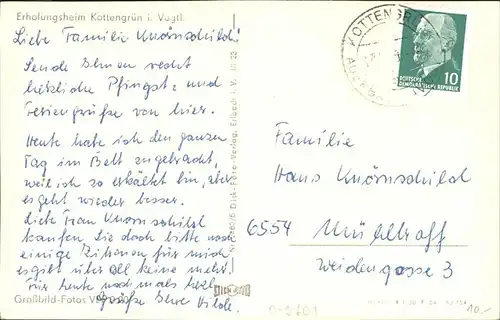 Erholungsheim Kottengrün i. Vogtl.
Liebe Familie Knörnschild!
Sende Ihnen recht
herzliche Pfingst- und
Feriengrüße von hier.
Heute habe ich den ganzen
Tag im Bett zugebracht,
weil ich so erkältet bin, aber
es geht wieder besser.
Frau Knörnschild
kaufen Sie doch bitte noch
einige Zitronen für mich
es gibt überall keine mehr!
Für heute nochmals herzl.
Grüße Ihre Hilde.
Großbild-Fotos
Foto-Verlag, Erlbach i. V.
KOTTENGRÜN
DEUTSCHE
DEMOKRATISCHE REPUBLIK
10
Familie
Hans Knörnschild
6554 Mühltroff
Weidengasse 3
10.-